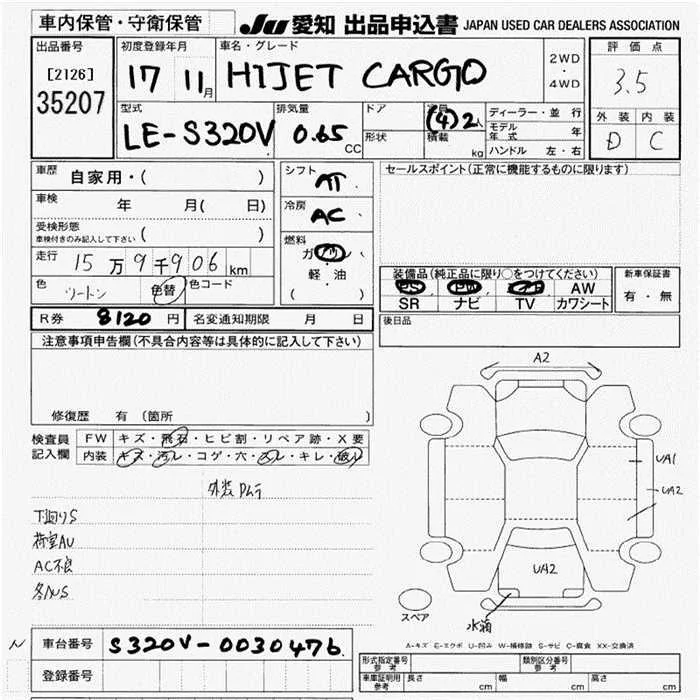 車内保管・守衛保管
JU 愛知 出品申込書 JAPAN USED CAR DEALERS ASSOCIATION
出品番号 初度登録年月 車名・グレード 2WD・4WD 評価点
[2126] 35207 17 11月 HIJET CARGO 3.5
型式 排気量 ドア 定員 ディーラー・並行 外装 内装
LE-S320V 0.65 CC 形状 (4)2人 積載 kg モデル年式 年 D C
ハンドル 左・右
車歴 自家用・( ) シフト AT セールスポイント(正常に機能するものに限ります)
車検 年 月( 日) 冷房 AC
受検形態 ( )
車検付きのみ記入して下さい
燃料 ガソリン
軽・油
( )
走行 15万9千906km
色 ツートン 色替 色コード
装備品(純正品に限り○をつけてください) 新車保証書
PS AW 有・無
SR ナビ TV カワシート
R券 8120円 名変通知期限 月 日 後日品
注意事項申告欄(不具合内容等は具体的に記入して下さい)
修復歴 有(箇所 )
検査員記入欄 FW キズ・飛石・ヒビ割・リペア跡・X要
内装 キズ・汚レ・コゲ・穴・スレ・キレ・破レ
下廻りS
AC不良
A2
UA1
UA2
UA2
スペア
A-キズ E-エクボ U-凹み W-補修跡 S-サビ C-腐食 XX-交換済
N 車台番号 S320V-0030476
登録番号
形式指定番号 参考 類別区分番号 参考
車庫証明用 参考 長さ cm 幅 cm 高さ cm